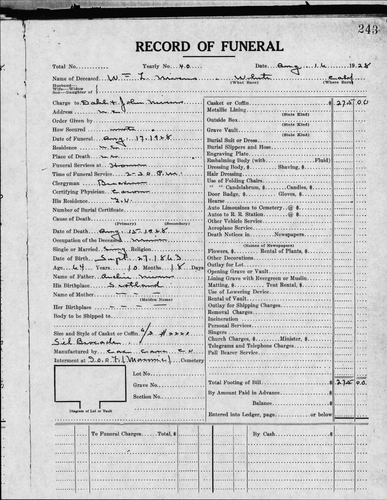 243
RECORD OF FUNERAL
Total No. Yearly No. 40 Date Aug 16 1928
Name of Deceased Wm L. White
(What Race) (Where Born)
Husband—
Wife—Widow
Son—Daughter of
Charge to Dahl & John
Address
Order Given by
How Secured
Date of Funeral Aug 17, 1928
Residence
Place of Death
Funeral Services at
Time of 2:30 P.M.
Clergyman
Certifying Physician
His Residence
Number of Burial Certificate
Cause of Death
(Primary) (Secondary)
Date of Death Aug 15-1928
Occupation of the Deceased
Single or Married Sing Religion
Date of Birth Sept. 27, 1863
Age 64 Years 10 Months 18 Days
Name of Father
His Birthplace Scotland
Name of Mother
(Maiden Name)
Her Birthplace
Body to be Shipped to
Size and Style of Casket or Coffin 6/3 # xxxx
Sil
Manufactured by
Interment at I.O.O.F. Cemetery
Lot No.
Grave No.
Section No.
Diagram of Lot or Vault
Casket or Coffin $ 275 00
Metallic Lining
(State Kind)
Outside Box
(State Kind)
Grave Vault
(State Kind)
Burial Suit or Dress
Burial Slippers and Hose
Engraving Plate
Embalming Body (with Fluid)
Dressing Body, $ Shaving, $
Hair Dressing
Use of Folding Chairs
" " Candelabrum, $ Candles, $
Door Badge, $ Gloves, $
Hearse
Auto Limousines to Cemetery @ $
Autos to R. R. Station @ $
Other Vehicle Service
Aeroplane Service
Death Notices in Newspapers
(Names of Newspapers)
Flowers, $ Rental of Plants, $
Other Decorations
Outlay for Lot
Opening Grave or Vault
Lining Grave with Evergreen or Muslin
Matting, $ Tent Rental, $
Use of Lowering Device
Rental of Vault
Outlay for Shipping Charges
Removal Charges
Incineration
Personal Services
Singers
Church Charges, $ Minister, $
Telegrams and Telephone Charges
Pall Bearer Service
Total Footing of Bill $ 275 00
By Amount Paid in Advance
Balance
Entered into Ledger, page or below
To Funeral Charges Total $ By Cash $